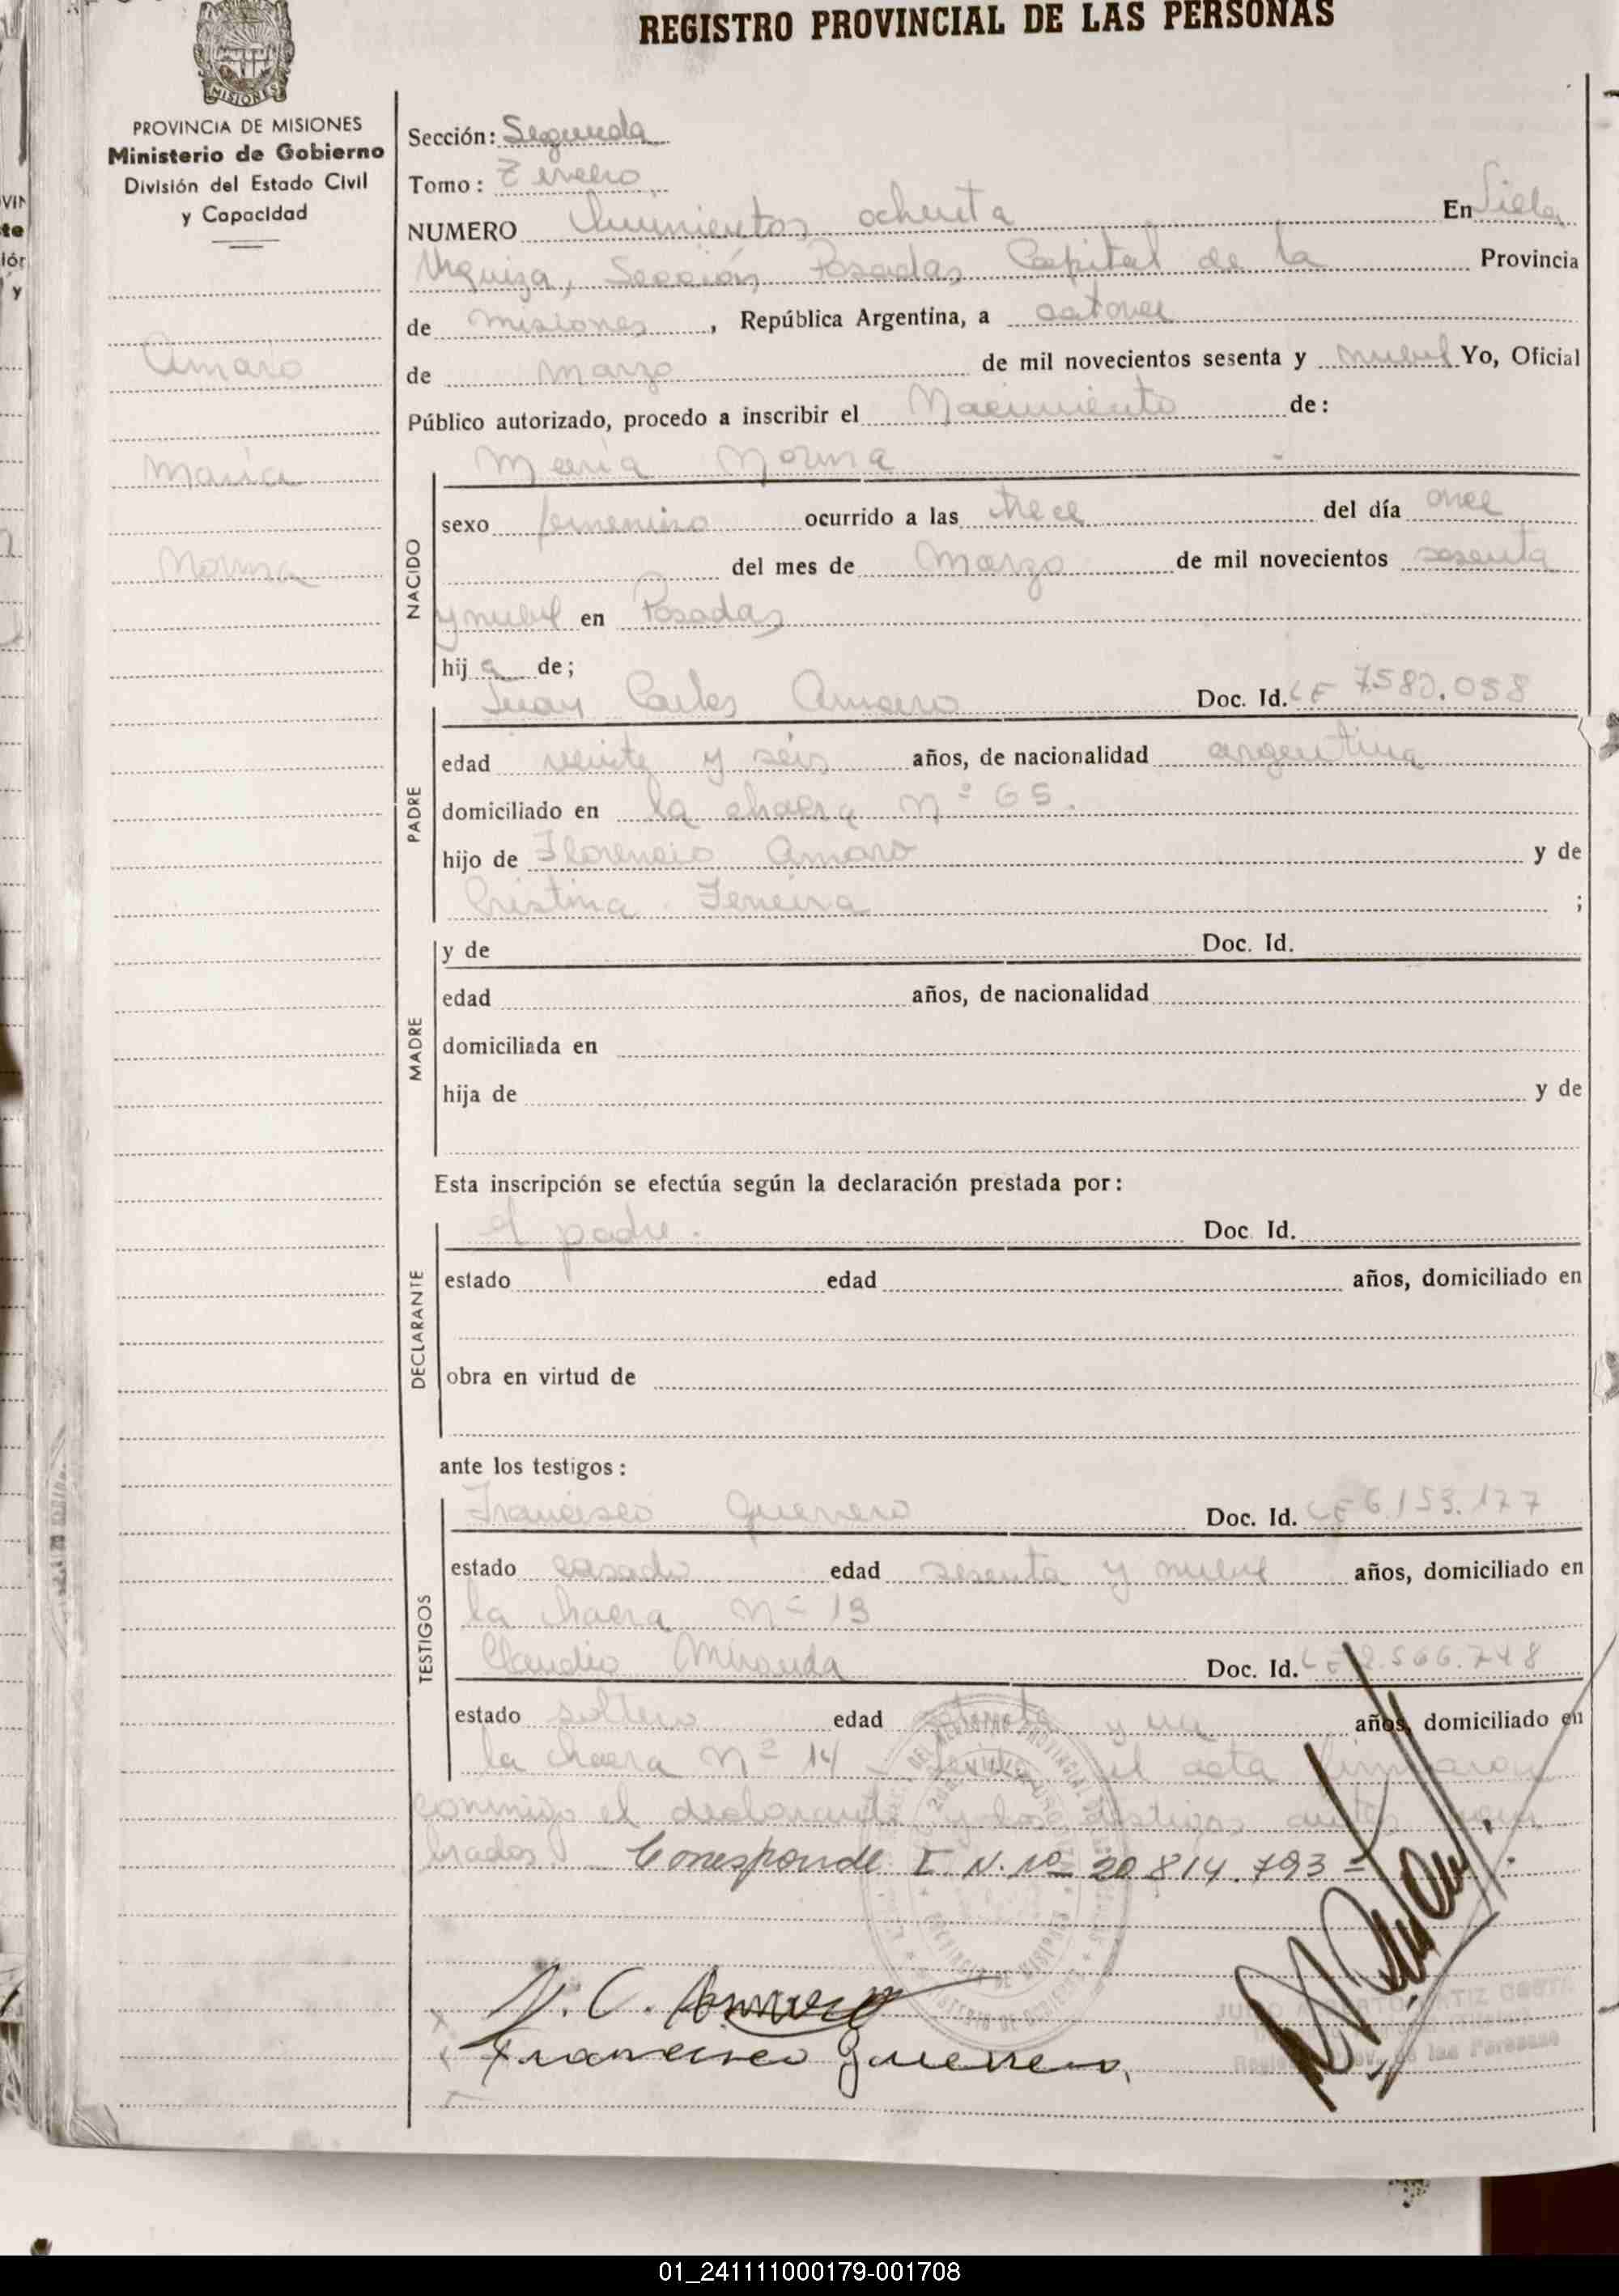 REGISTRO PROVINCIAL DE LAS PERSONAS
MISIONES
PROVINCIA DE MISIONES
Ministerio de Gobierno
División del Estado Civil
y Capacidad
Amaro
Maria
Norma
Sección: Segunda
Tomo:
NUMERO ochenta En
Urquiza, Sección Posadas Capital de la Provincia
de misiones, República Argentina, a catorce
de marzo de mil novecientos sesenta y nueve Yo, Oficial
Público autorizado, procedo a inscribir el Nacimiento de:
NACIDO
Maria Norma
sexo femenino ocurrido a las trece del día once
del mes de Marzo de mil novecientos sesenta
y nueve en Posadas
hij a de;
PADRE
Juan Carlos Amaro Doc. Id. LE 7.580.058
edad veinte y séis años, de nacionalidad argentina
domiciliado en la chacra Nº 65.
hijo de Florencio Amaro y de
Cristina Ferreira ;
MADRE
y de Doc. Id.
edad años, de nacionalidad
domiciliada en
hija de y de
Esta inscripción se efectúa según la declaración prestada por:
DECLARANTE
el padre. Doc. Id.
estado edad años, domiciliado en
obra en virtud de
ante los testigos:
TESTIGOS
Francisco Guerrero Doc. Id. LE 6.153.177
estado casado edad sesenta y nueve años, domiciliado en
la chacra Nº 13
Claudio Miranda Doc. Id. LE 2.566.748
estado soltero edad y un años, domiciliado en
la chacra Nº 14 el acta firmaron
conmigo el declarante y los testigos antes nom
brados. Corresponde I. N. Nº 20.814.793-
J. C. Amaro
Francisco Guerrero,
01_241111000179-001708